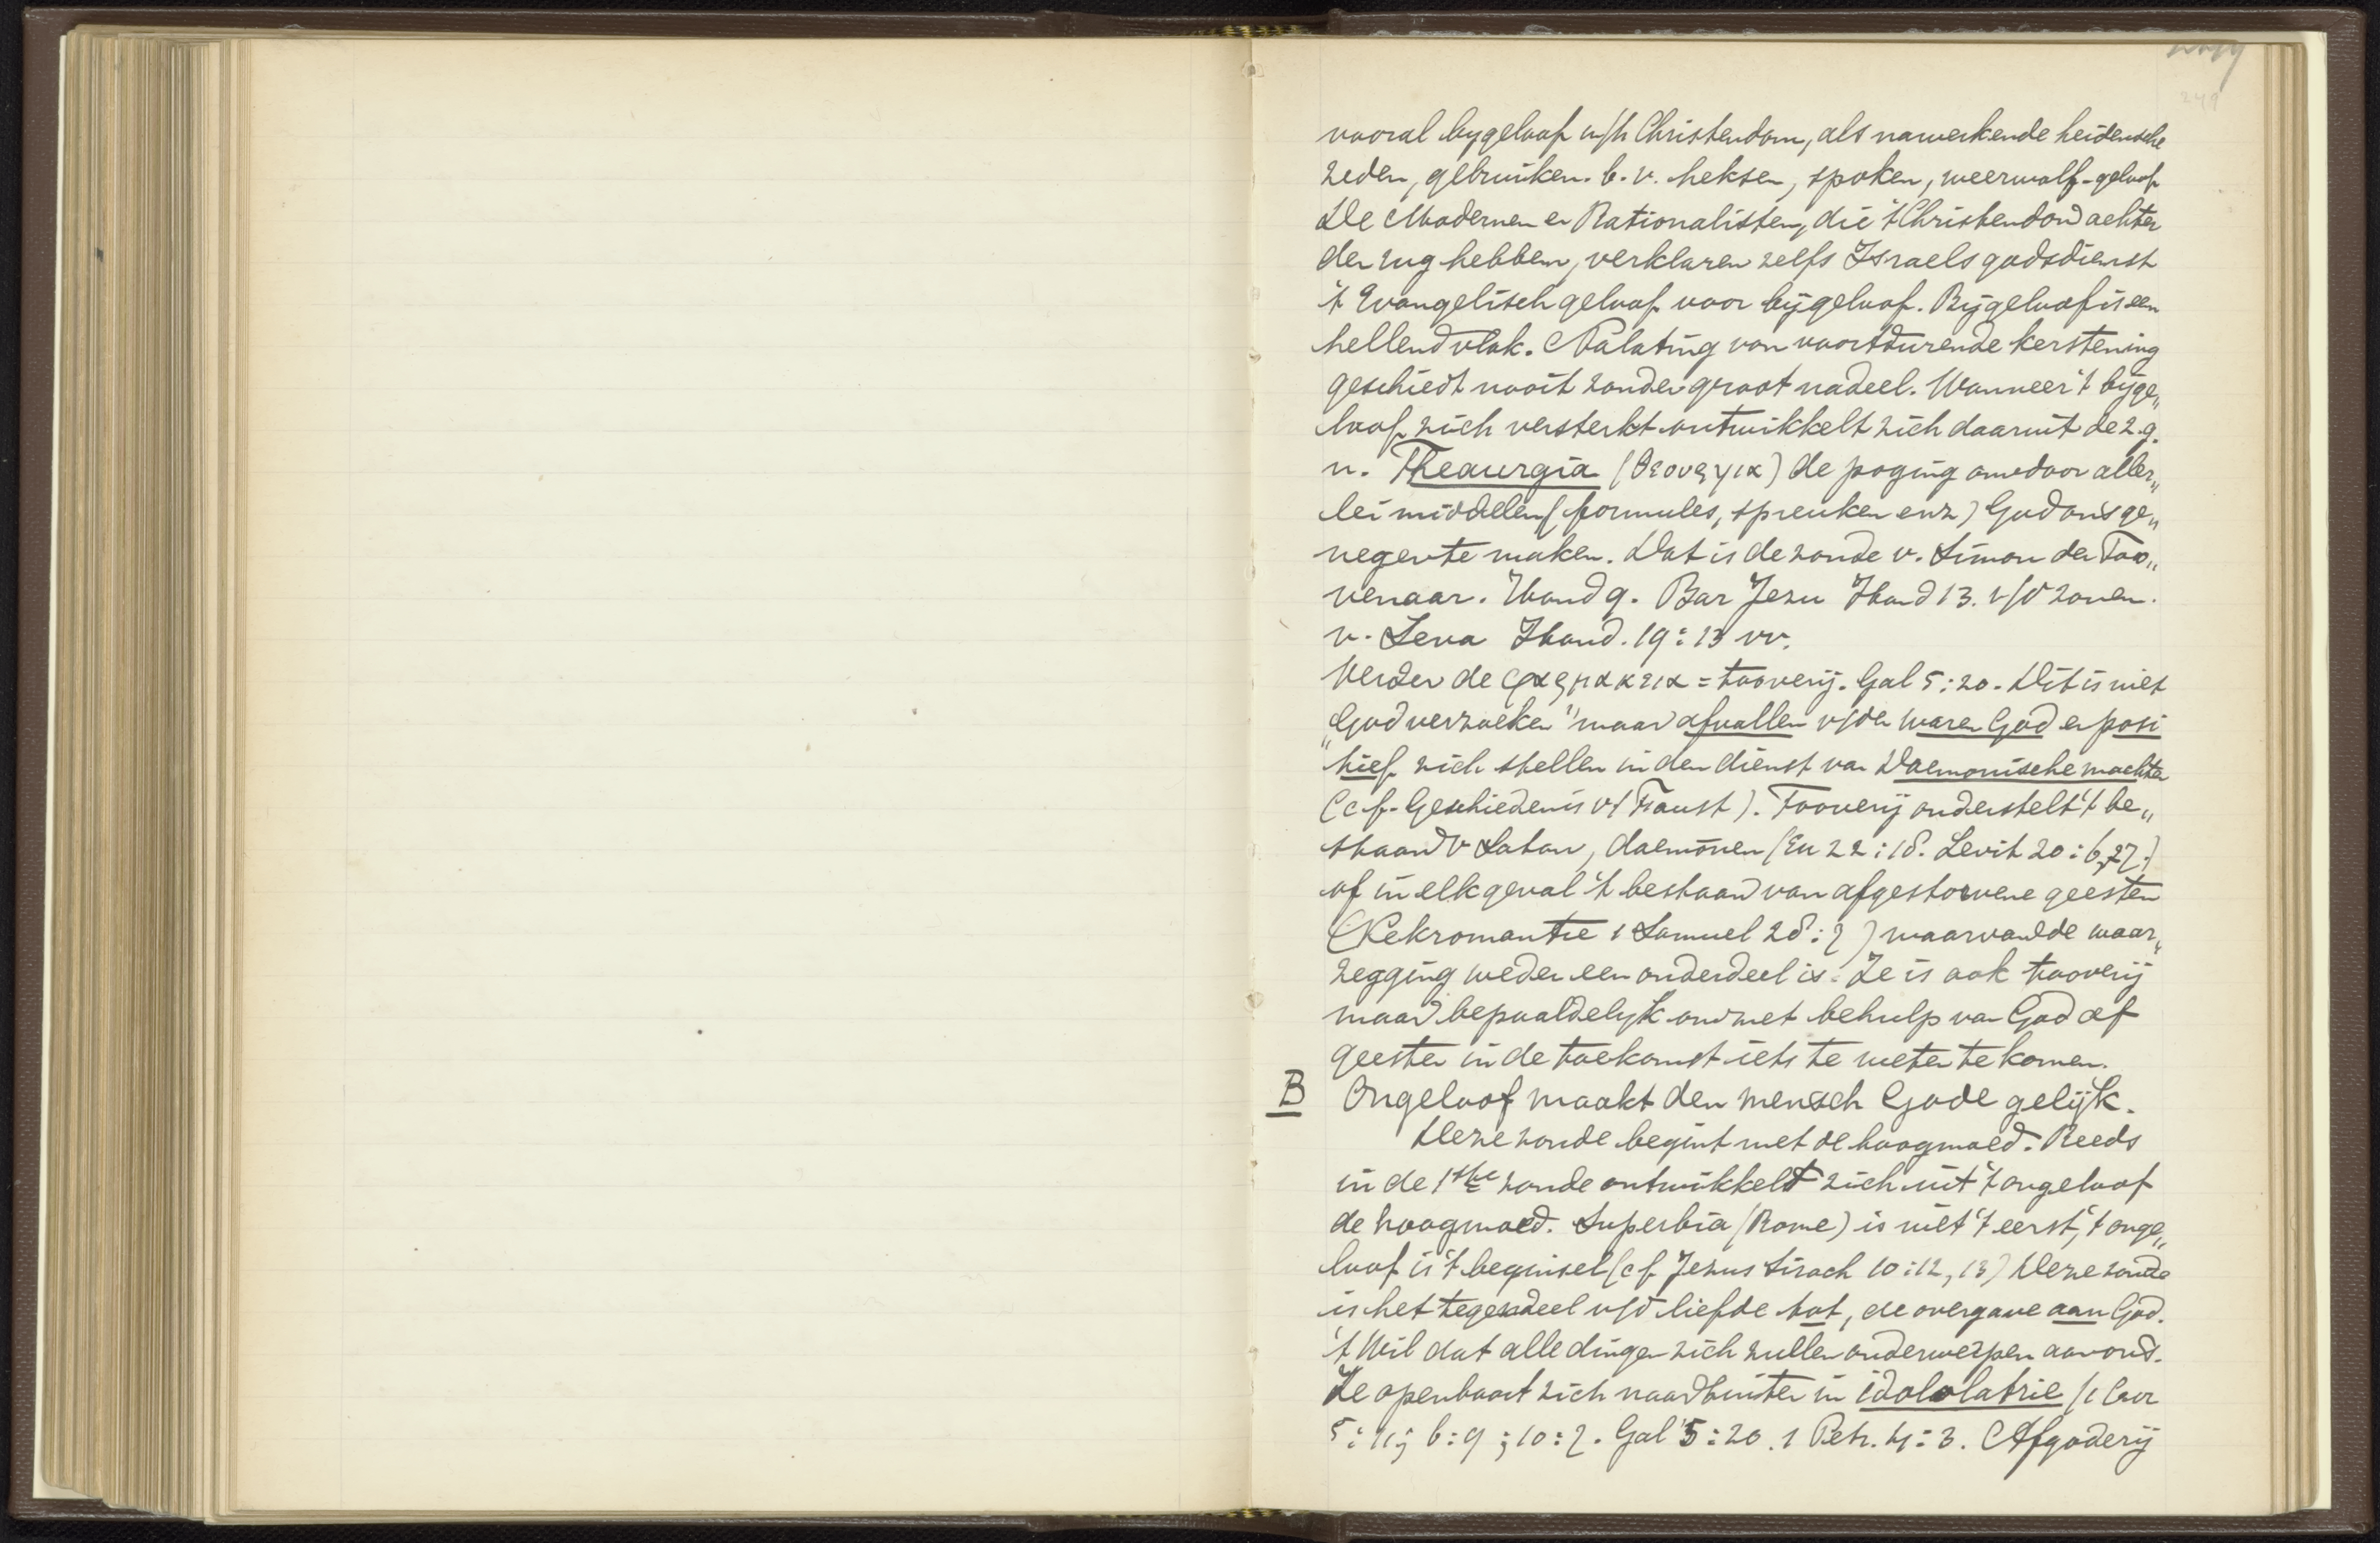 249
vooral bygeloof in/h Christendom, als nawerkende heidensche
zeden, gebruiken. b.v. heksen, spoken, weerwolf-geloof
De Modernen en Rationalisten, die 't Christendom achter
den rug hebben, verklaren zelfs Israels godsdienst
't Evangelisch geloof voor bijgeloof. Bijgeloof is een
hellend vlak. Nalating van voortdurende kerstening
geschiedt nooit zonder groot nadeel. Wanneer 't bijge„
loof zich versterkt ontwikkelt zich daaruit de z.g.
n. Theaurgia (θεουργια) de poging om door aller„
lei middelen (formules, spreuken enz) God ons ge„
negen te maken. Dat is de zonde v. Simon den Too„
venaar. Hand 9. Bar Jezu Hand 13. v/d zonen.
v. Seva Hand. 19:13 vv.
Verder de φαρμακεια = tooverij. Gal 5:20. Dit is niet
„God verzoeken" maar afvallen v/den waren God en posi
tief zich stellen in den dienst van Daemonische machten
(cf. Geschiedenis v/ Faust). Tooverij onderstelt 't be„
staan v Satan, daemonen (Ex 22:18. Levit 20:6,27.)
of in elk geval 't bestaan van afgestorvene geesten
(Nekromantie 1 Samuel 28:7) waarvan de waar„
zegging weder een onderdeel is. Ze is ook tooverij
maar bepaaldelyk om met behulp van God of
geesten in de toekomst iets te weten te komen.
B Ongeloof maakt den mensch Gode gelijk.
Deze zonde begint met de hoogmoed. Reeds
in de 1ste zonde ontwikkelt zich uit 't ongeloof
de hoogmoed. Superbia (Rome) is niet 't eerst, 't onge„
loof is 't beginsel (cf Jezus Sirach 10:12,13) Deze zonde
is het tegendeel v/d liefde tot, de overgave aan God.
't Wil dat alle dingen zich zullen onderwerpen aan ons.
Ze openbaart zich naar buiten in idololatrie (1 Cor
5:11; 6:9; 10:7. Gal 5:20. 1 Petr. 4:3. Afgoderij